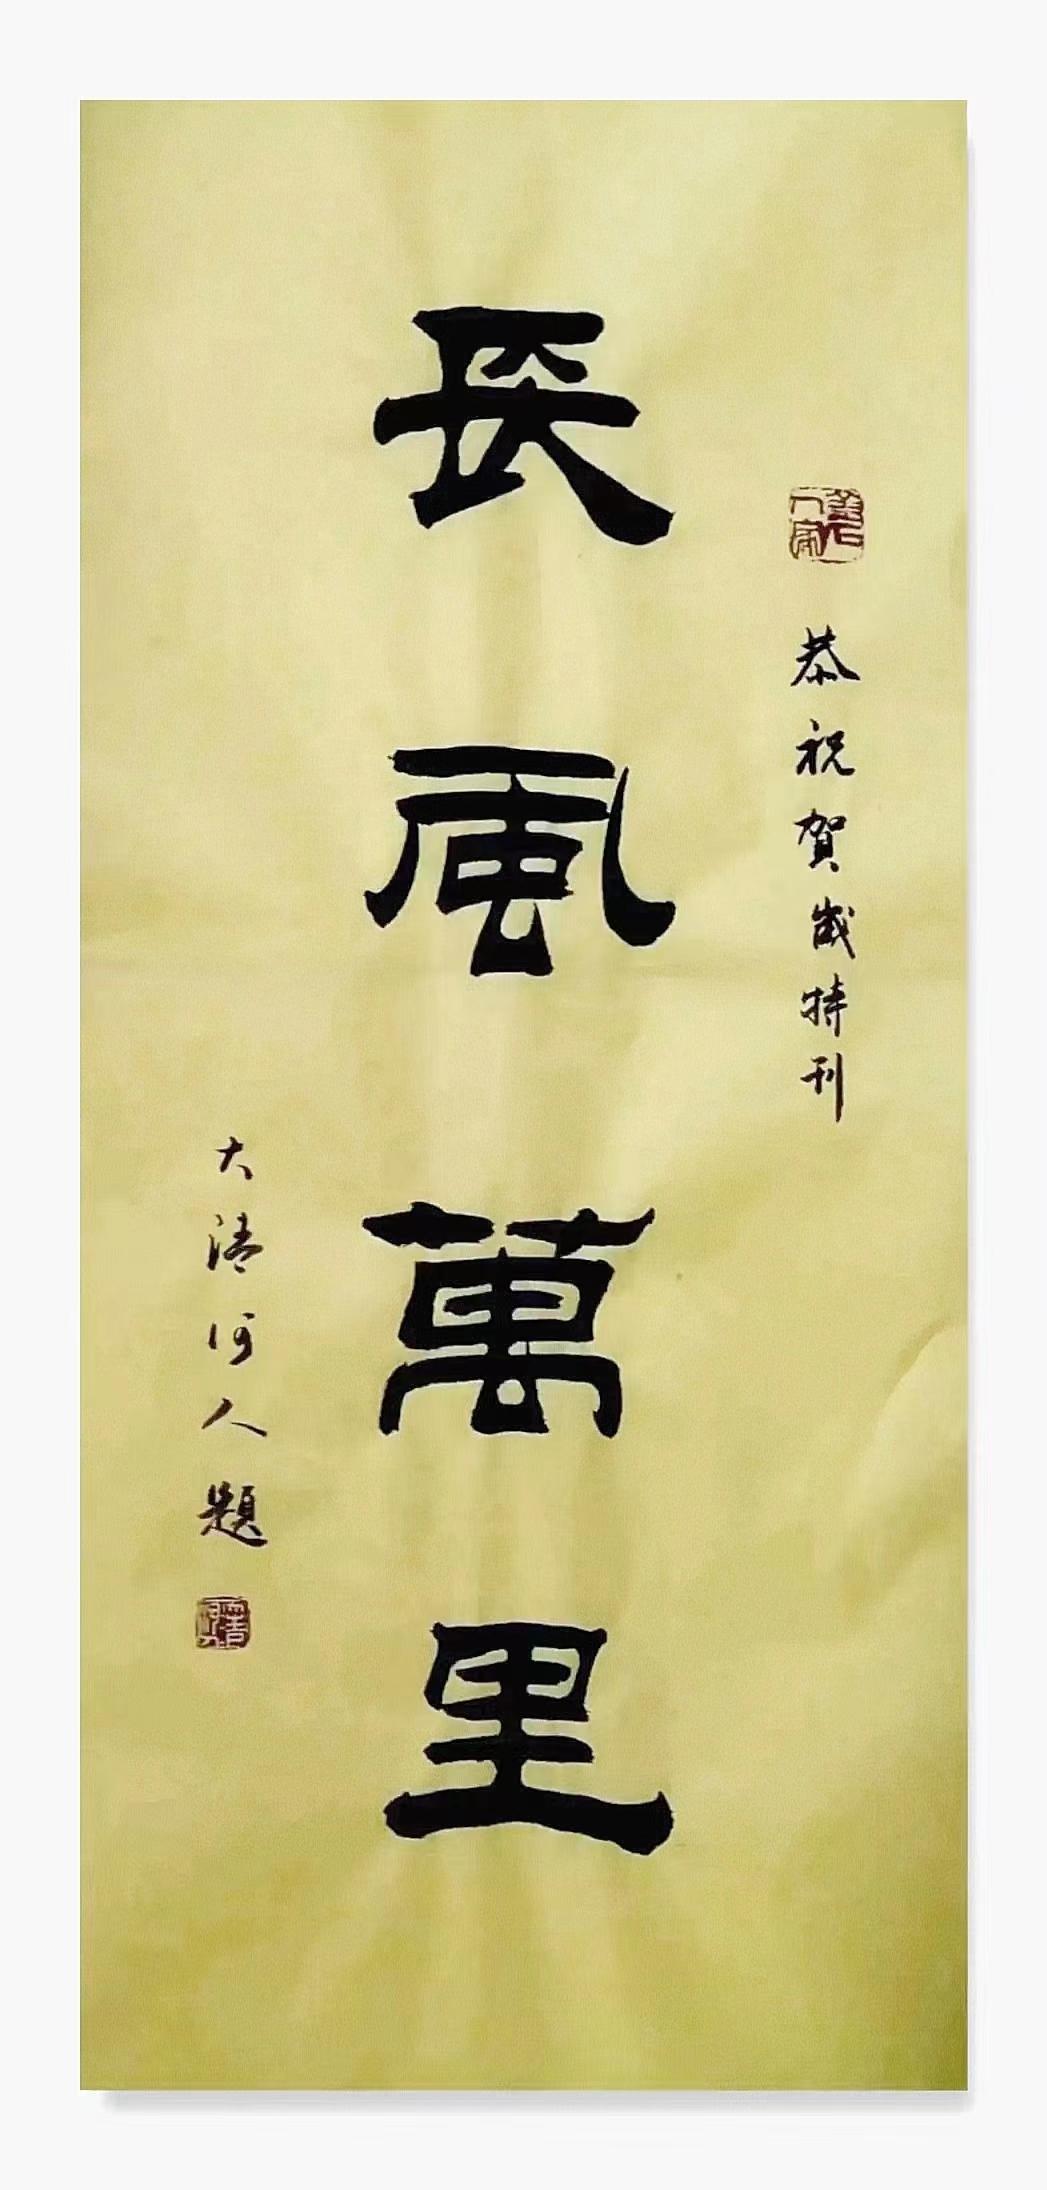 恭祝賀歲特刊
長風萬里
大清河人題